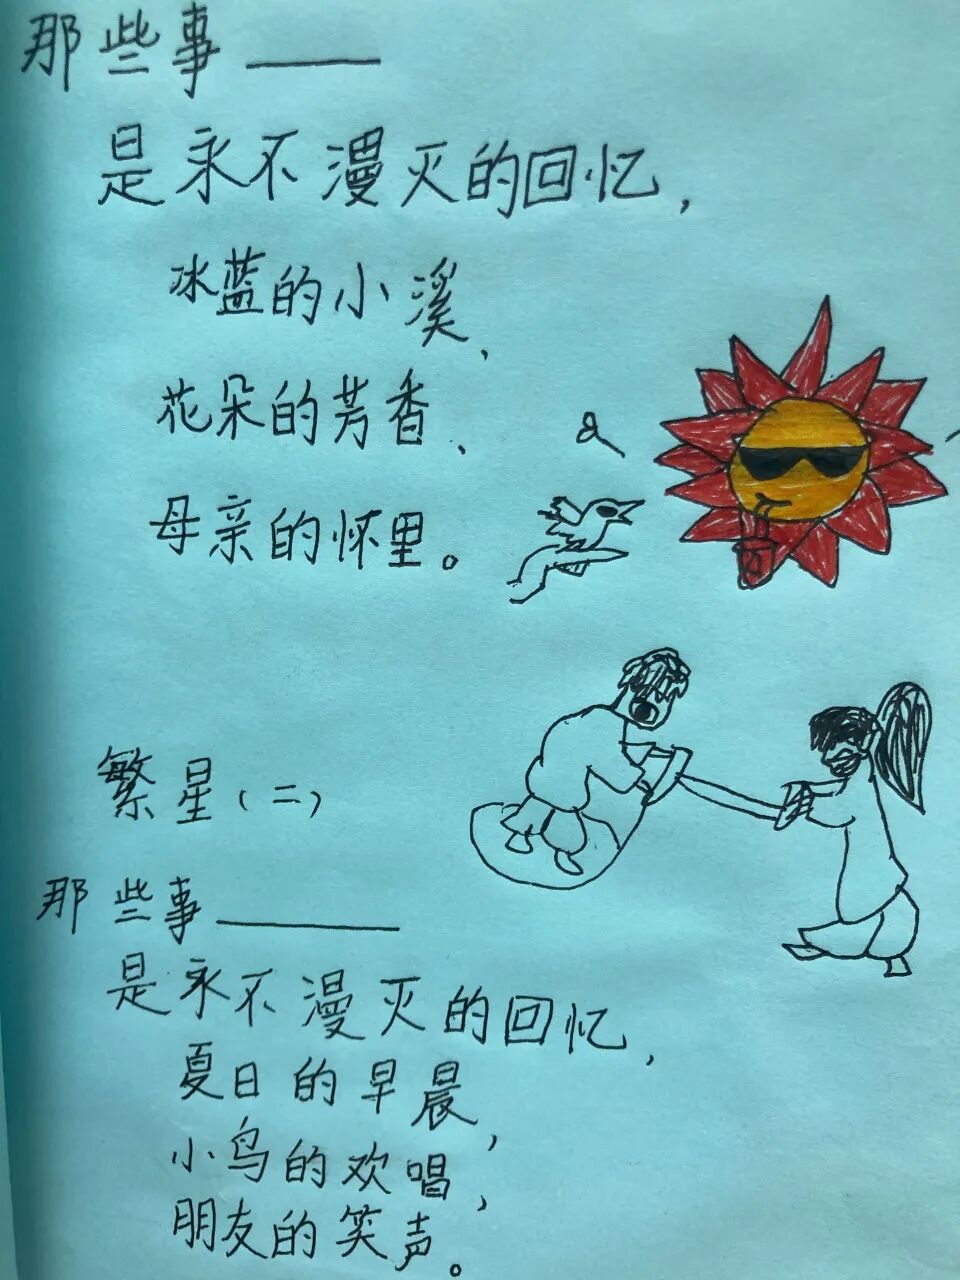 那些事——
是永不漫灭的回忆，
冰蓝的小溪、
花朵的芳香、
母亲的怀里。
繁星（二）
那些事——
是永不漫灭的回忆，
夏日的早晨，
小鸟的欢唱，
朋友的笑声。